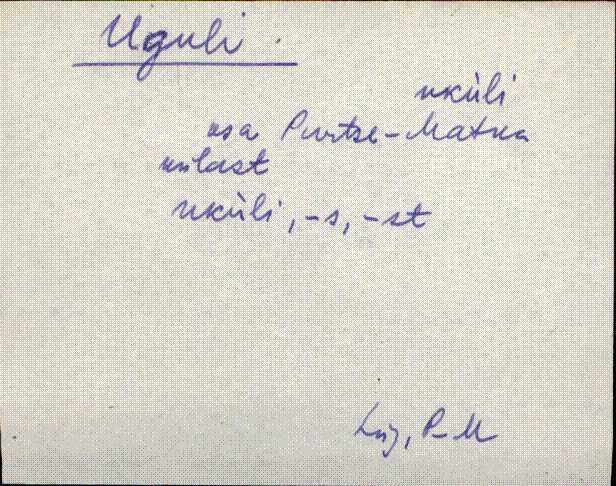 Uguli.
uküli
osa Purtse-Matka
külast
uküli, -s, -st
Lüg, P-M